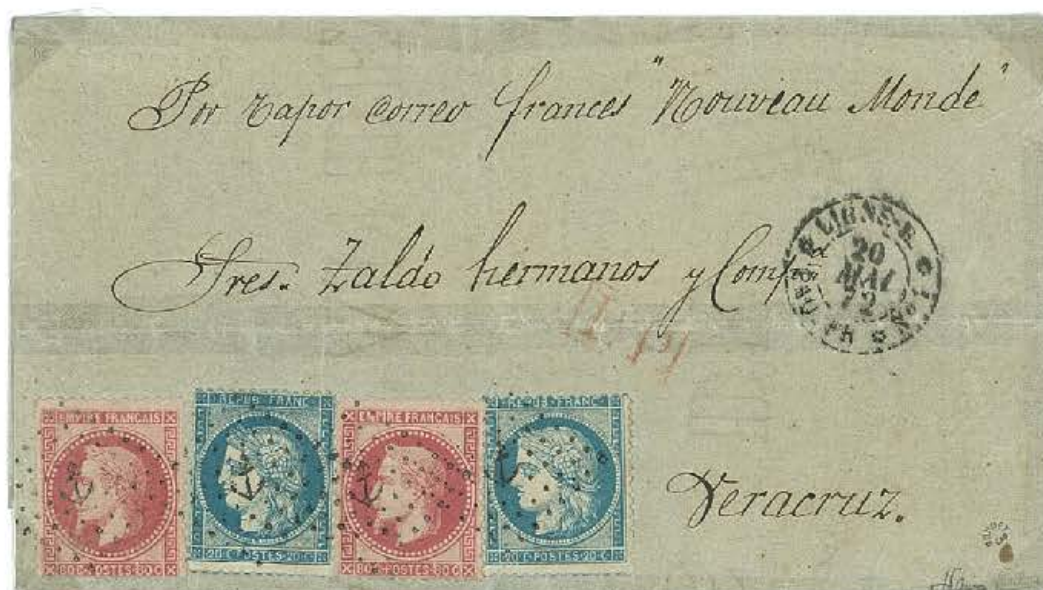 Por vapor correo frances "Nouveau Monde"
Sres. Zaldo hermanos y Comp
LIGNE B
20
MAI
72
PAQ. FR. No 1
Veracruz.
EMPIRE FRANÇAIS
80C POSTES 80C
REPUB FRANC
20C POSTES 20C
EMPIRE FRANÇAIS
80C POSTES 80C
REPUB FRANC
20C POSTES 20C